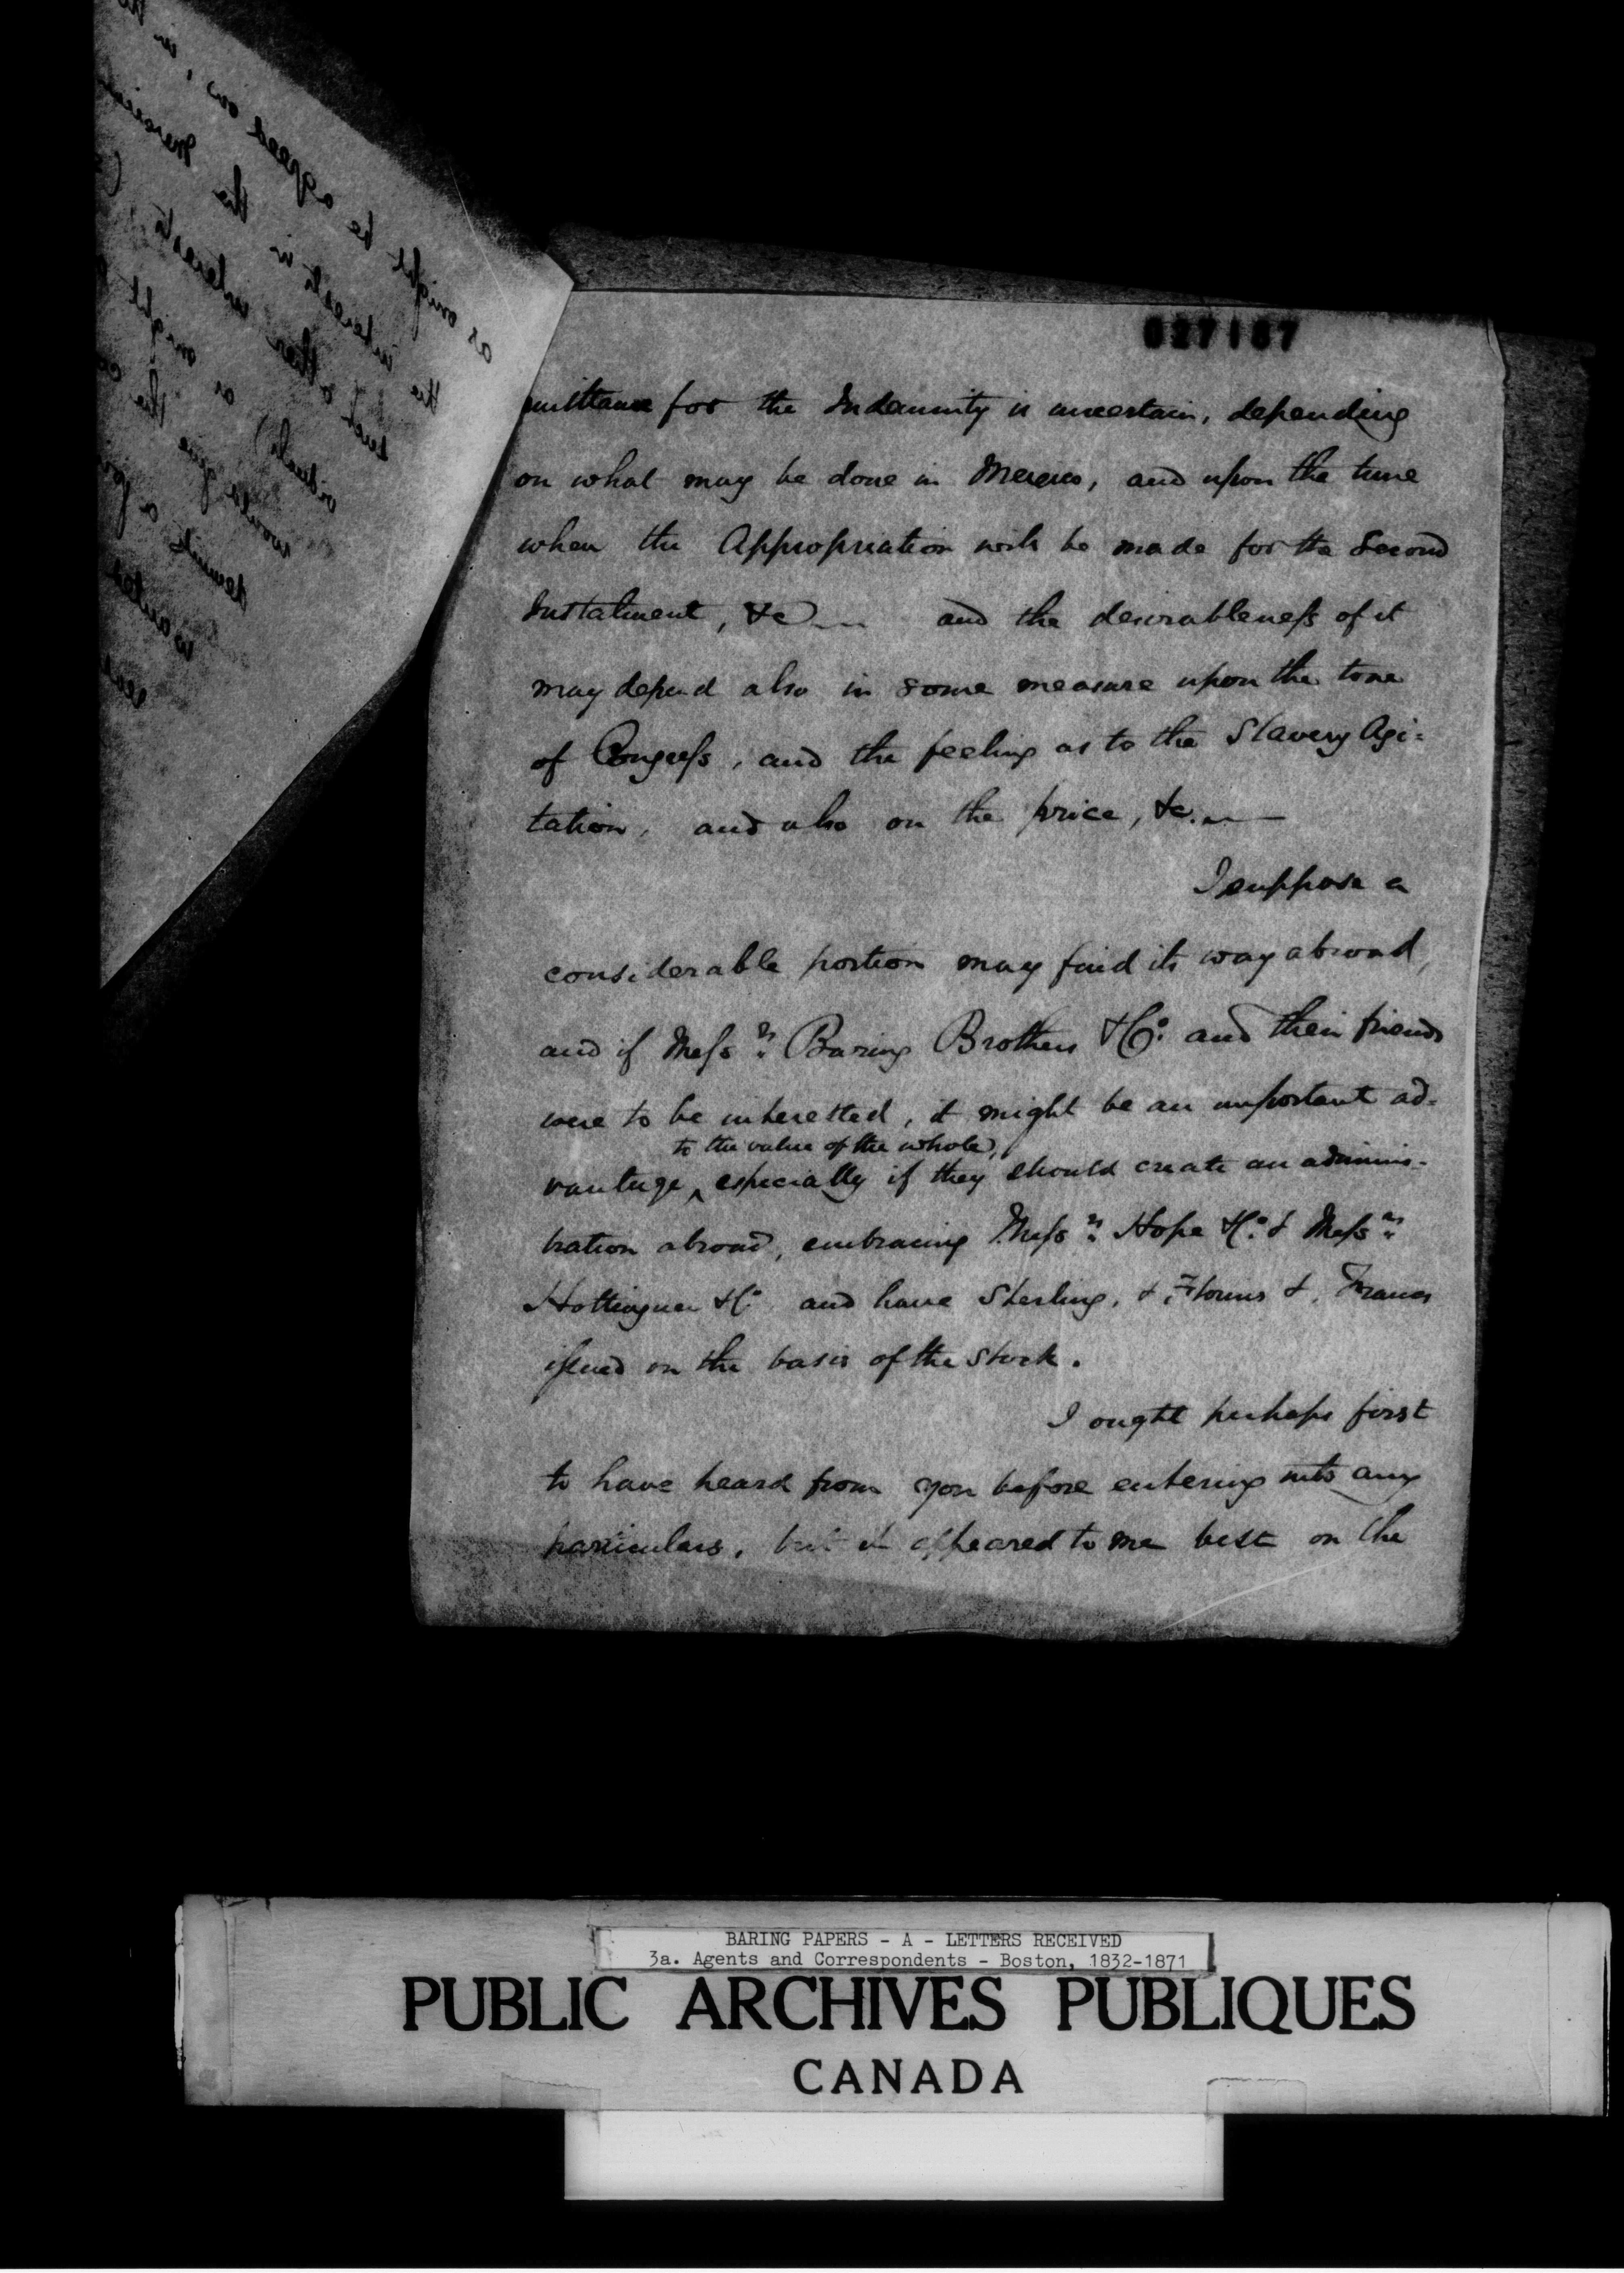 027187
mittance for the Indemnity is uncertain, depending
on what may be done in Mexico, and upon the time
when the Appropriation will be made for the Second
Instalment, &c — and the desirableneſs of it
may depend also in some measure upon the tone
of Congreſs, and the feeling as to the Slavery Agi=
tation, and also on the price, &c. —
I suppose a
considerable portion may find its way abroad,
and if Meſsrs. Baring Brothers & Co. and their friends
were to be interested, it might be an important ad=
to the value of the whole,
vantage ‸ especially if they should create an adminis-
tration abroad, embracing Meſsrs. Hope & Co. & Meſsrs.
Hottinguer & Co and have Sterling, & Florins & Francs
iſsued on the basis of the Stock.
I ought perhaps first
to have heard from you before entering into any
particulars, but it appeared to me best on the
BARING PAPERS - A - LETTERS RECEIVED
3a. Agents and Correspondents - Boston, 1832-1871
PUBLIC ARCHIVES PUBLIQUES
CANADA
as might be agreed on, in
the interests in the Mexican
such other interests
viduals) as might
would give the
permit a
wanted